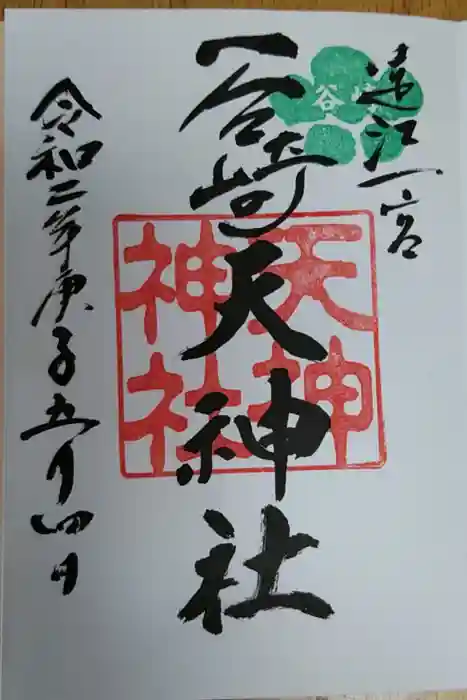 遠江一宮
谷崎
谷崎天神社
天神
神社
令和二年庚子五月四日